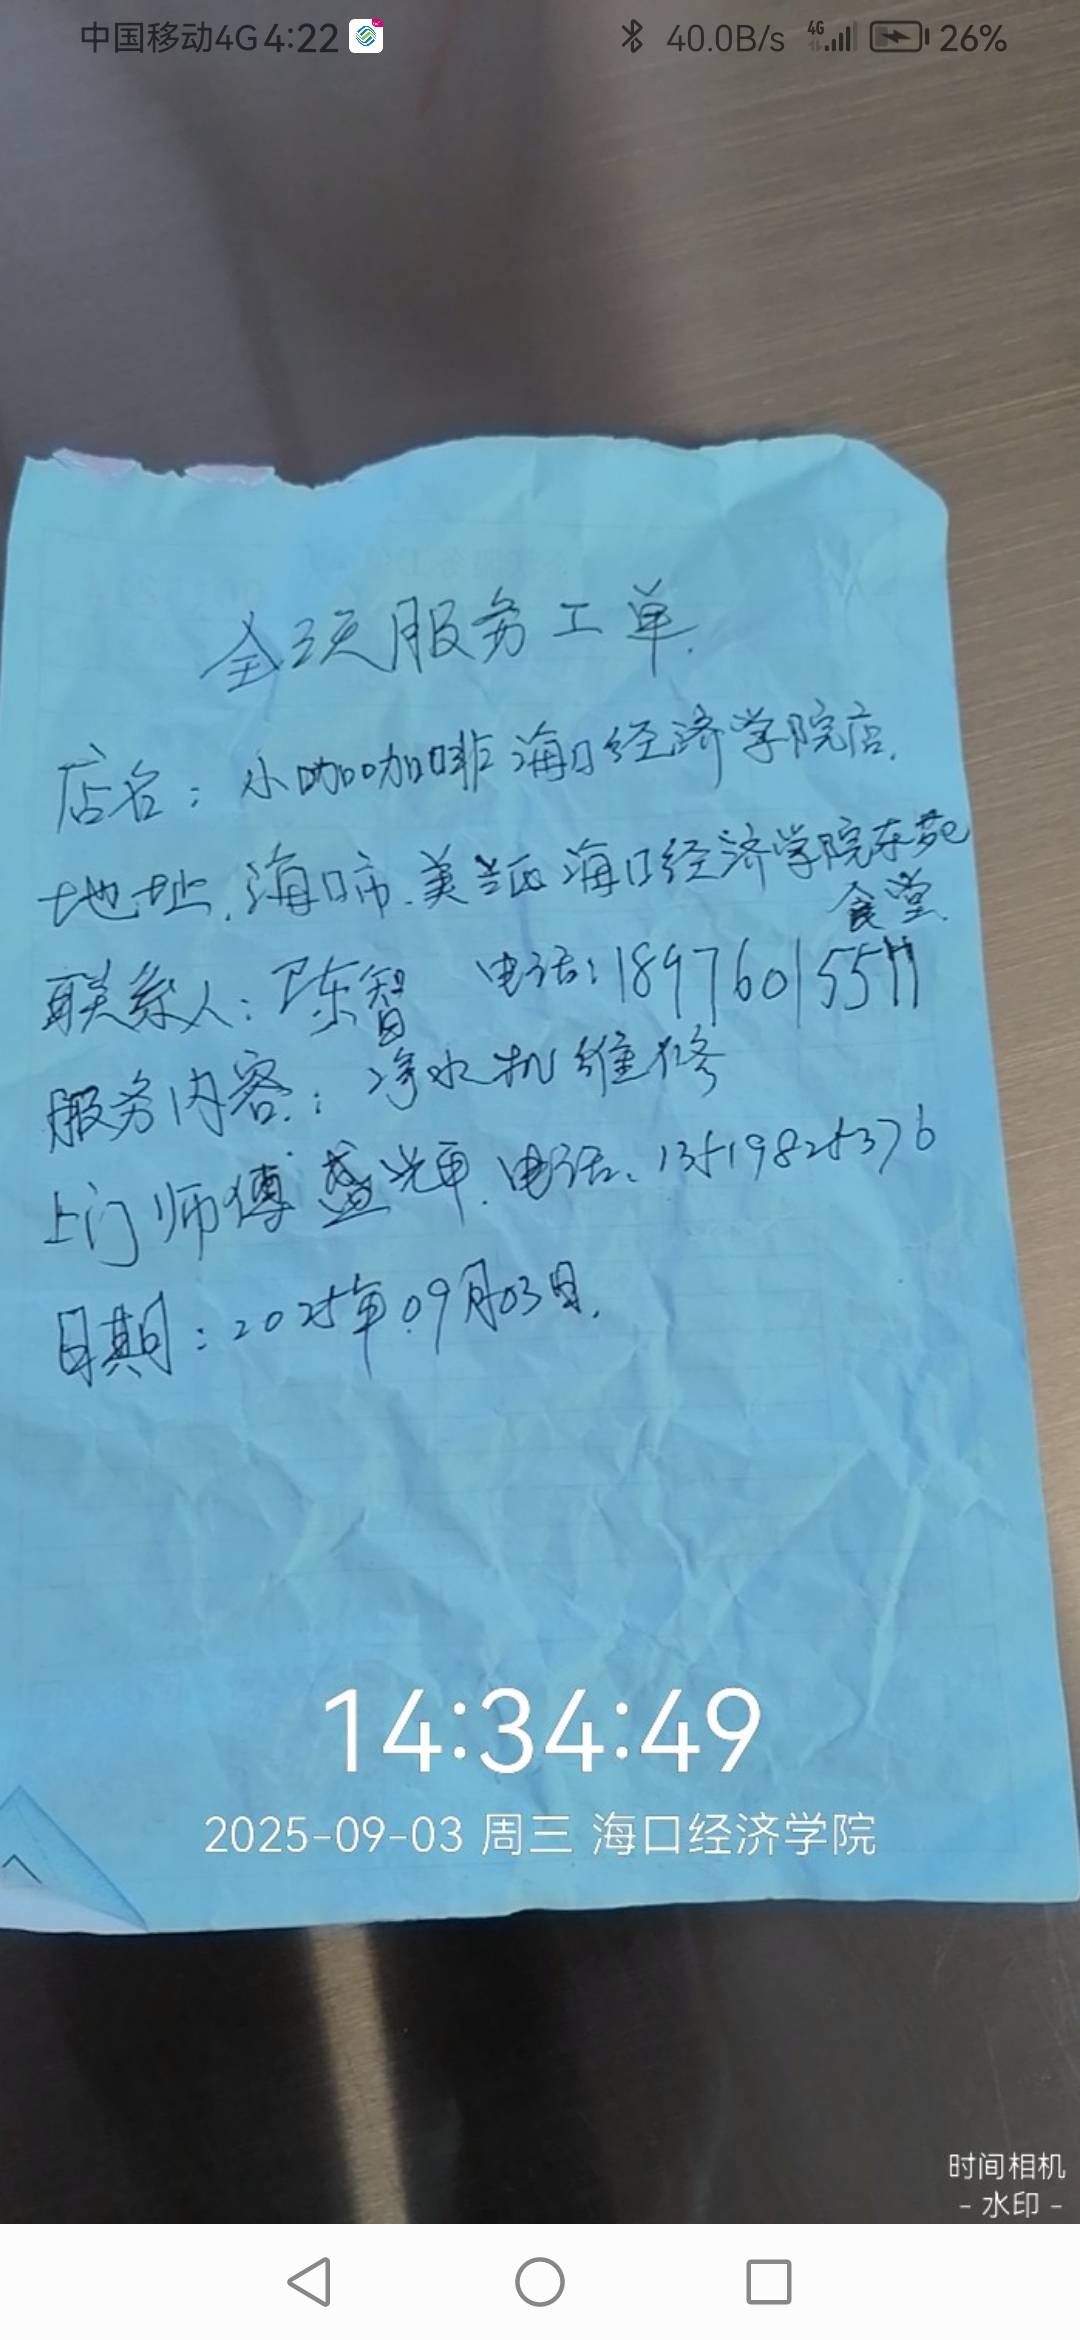 中国移动4G 4:22 40.0B/s 4G 26%
全天服务工单.
店名：小咖咖啡海口经济学院店.
地址.海口市.美兰区海口经济学院东苑
食堂
联系人：陈智 电话：189760155
服务内容：净水机维修
上门师傅盛光軍.电话.13519825376
日期：2025年.09月03日.
14:34:49
2025-09-03 周三 海口经济学院
时间相机
- 水印 -